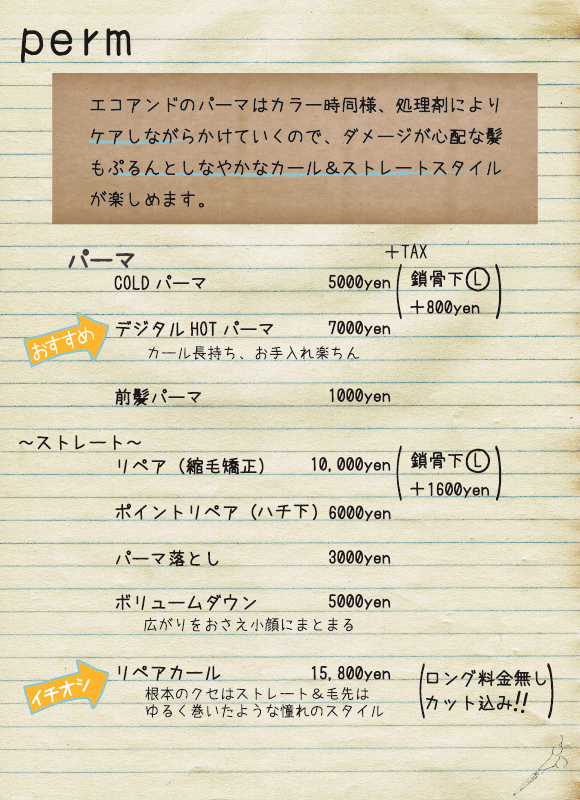 perm
エコアンドのパーマはカラー時同様、処理剤により
ケアしながらかけていくので、ダメージが心配な髪
もぷるんとしなやかなカール＆ストレートスタイル
が楽しめます。
＋TAX
パーマ
COLD パーマ 5000yen (鎖骨下Ⓛ
＋800yen)
おすすめ
デジタル HOT パーマ 7000yen
カール長持ち、お手入れ楽ちん
前髪パーマ 1000yen
～ストレート～
リペア（縮毛矯正） 10,000yen (鎖骨下Ⓛ
＋1600yen)
ポイントリペア（ハチ下）6000yen
パーマ落とし 3000yen
ボリュームダウン 5000yen
広がりをおさえ小顔にまとまる
イチオシ
リペアカール 15,800yen (ロング料金無し
カット込み!!)
根本のクセはストレート＆毛先は
ゆるく巻いたような憧れのスタイル